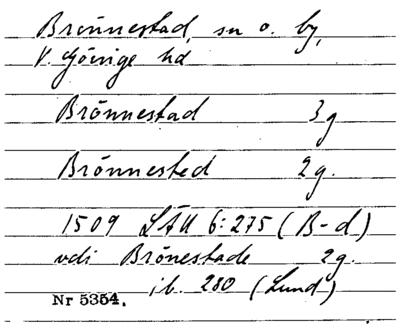 Brönnestad, sn o. by,
V. Göinge hd
Brönnestad 3g
Brönnested 2g.
1509 LÄU 6:275 (B-d)
vdi Brönestade 2g.
ib. 280 (Lund)
Nr 5354.